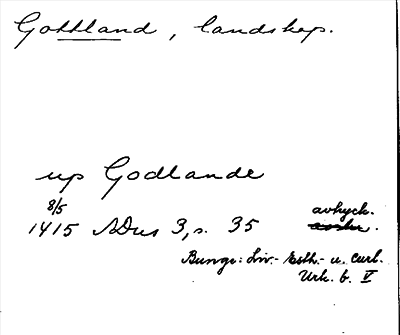 Gottland, landskap.
up Godlande
8/5
1415 NDns 3, s. 35 avtryck.
Bunge: Liv.- Esth.- u. Curl.
Urk. b. V